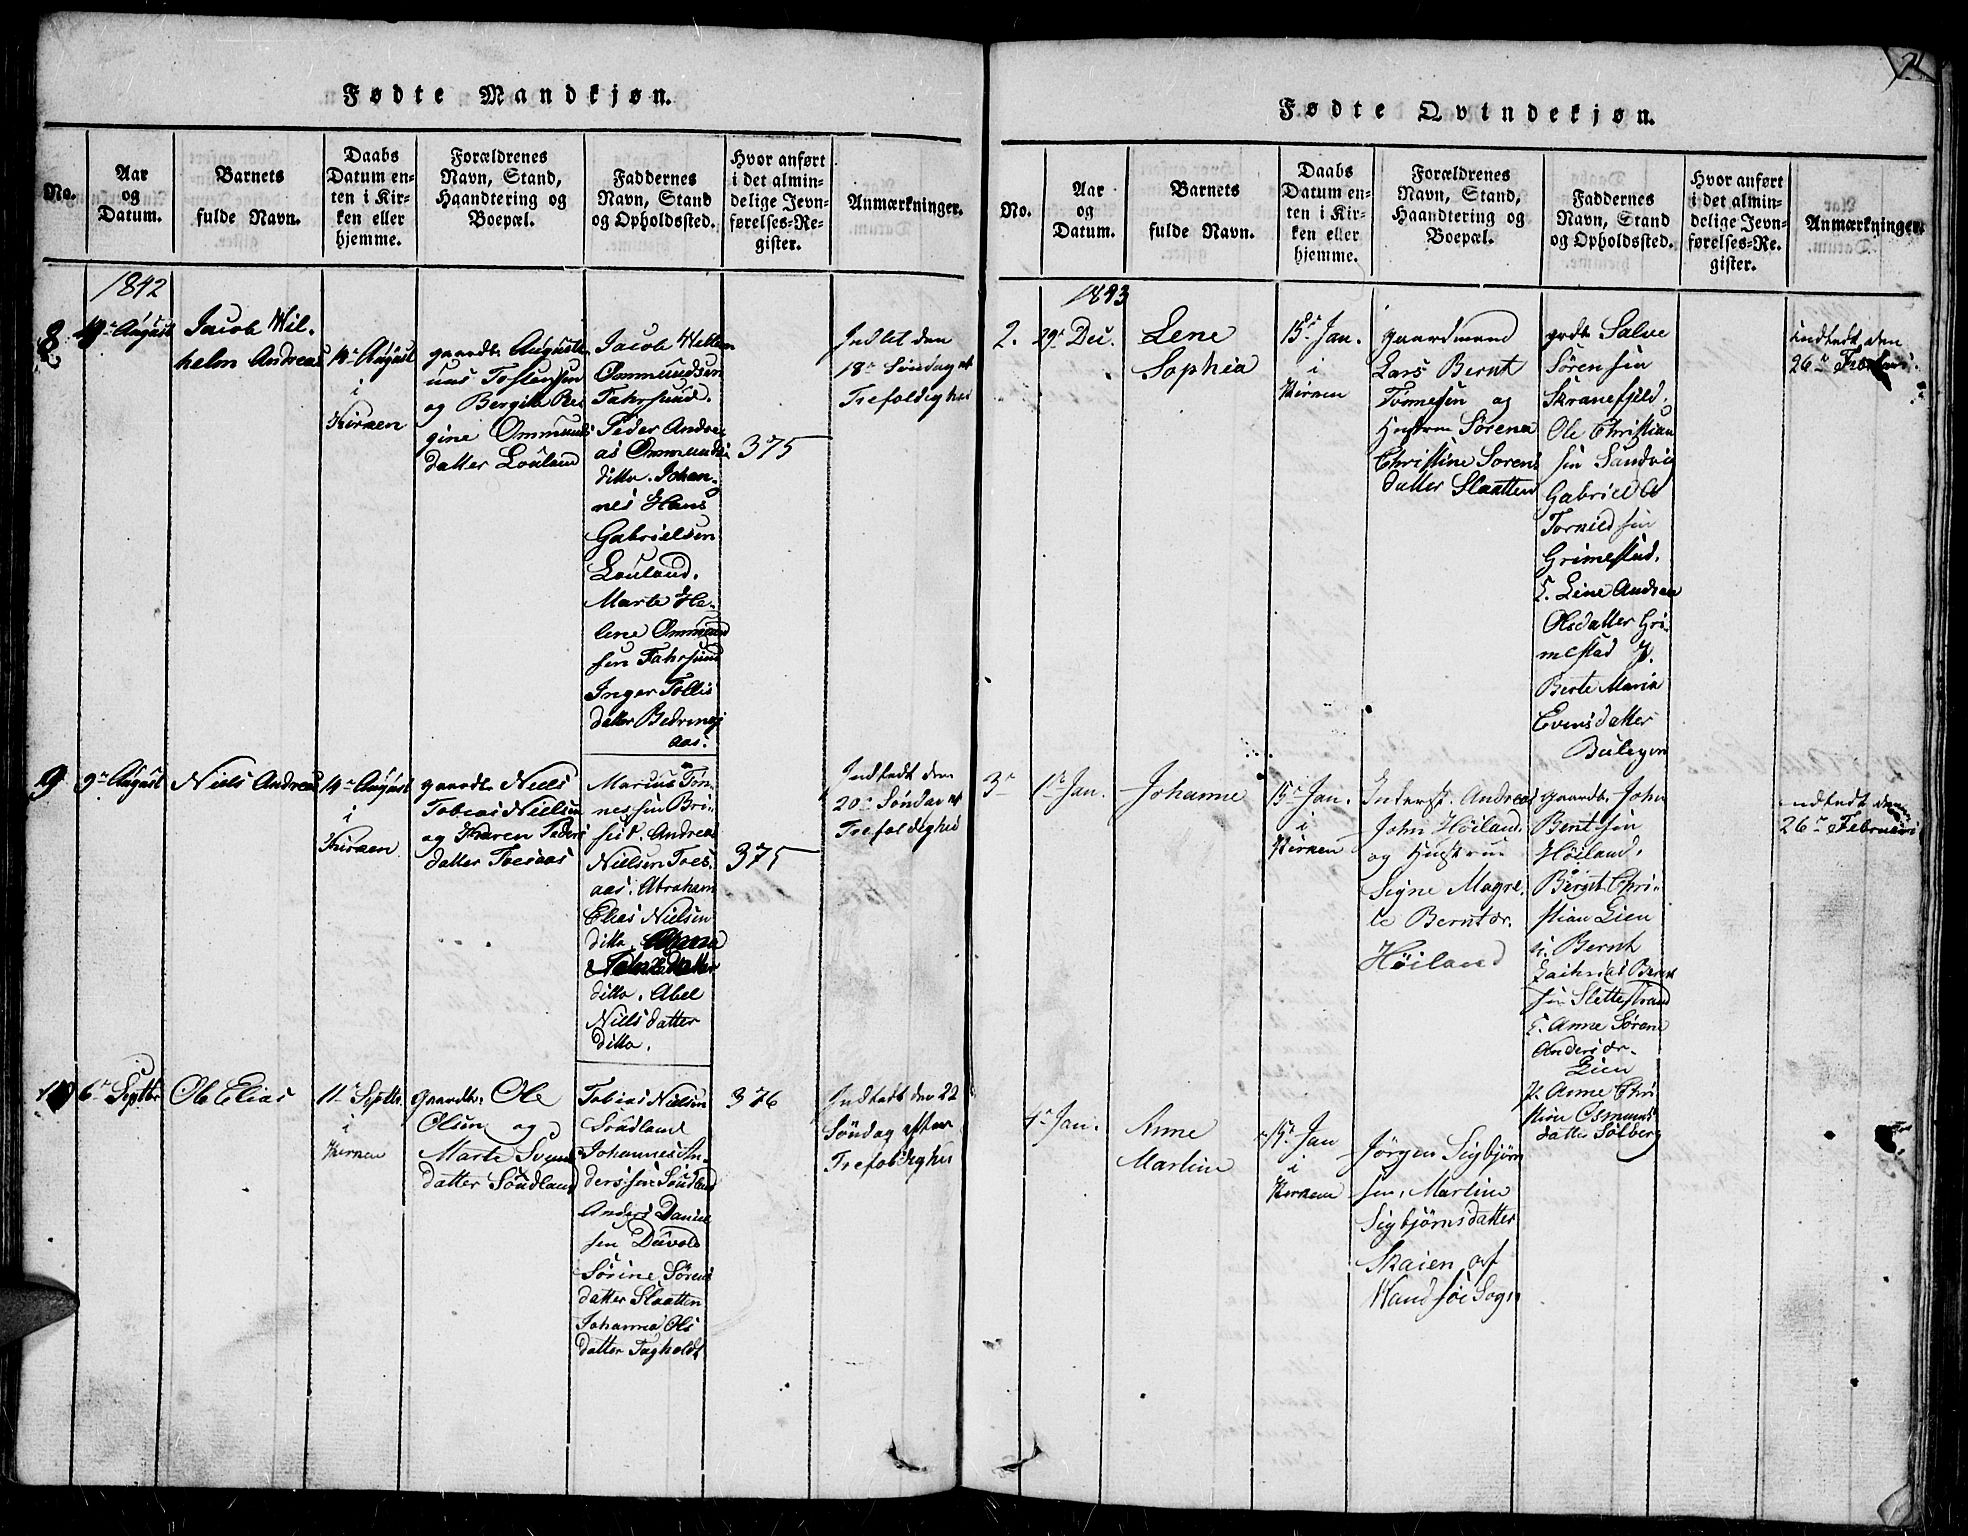 Fødte Mandkjøn.
No.
Aar
og
Datum.
Barnets
fulde Navn.
Daabs
Datum en-
ten i Kir-
ken eller
hjemme.
Forældrenes
Navn, Stand,
Haandtering og
Boepæl.
Faddernes
Navn, Stand
og Opholdssted.
Hvor anført
i det almin-
delige Jevn-
førelses-Re-
gister.
Anmærkninger.
1842
8
August
Jacob Wil-
helm Andreas
14de August
i
Kirken
gaardb. Augusti-
nus Tostensen
og Bergitte Re-
gine Ommunds
datter Louland
Jacob Willem
Ommundsen
Fahrsund.
Peder Andre
as Ommunds
ditto. Johan-
nes Hans
Gabrielsen
Louland.
Marte He-
lene Ommund
sen Fahrsund
Inger Tollis
datter
aas.
375
Indlet den
18de Søndag
Trefoldighed
9
9de August
Niels Andreas
14de August
i
Kirken
gaardb. Niels
Tobias Nielsen
og Karen Peders
datter Foesaas
Marius Tøn-
nessen Bri-
seid. Andreas
Nielsen Foes-
aas. Abraham
Elias Nielsen
ditto.
ditto. Abel
Nielsdatter
ditto.
375
Indledt den
20de Søndag
Trefoldighed
10
6te Septbr
Ole Elias
11te Septbr.
i
Kirken
gaardb. Ole
Olsen og
Marte Svends
datter Søndland
Tobias Nielsen
Søndland
Johannes An-
dersen Søndland
Anders Daniel
sen
Sørine Sørens
datter Slaatten
Johanna Ols
datter Fagholdt
376
Indledt den 22
Søndag efter
Trefoldighed
Fødte Qvindekjøn.
No.
Aar
og
Datum.
Barnets
fulde Navn.
Daabs
Datum en-
ten i Kir-
ken eller
hjemme.
Forældrenes
Navn, Stand,
Haandtering og
Boepæl.
Faddernes
Navn, Stand
og Opholdssted.
Hvor anført
i det almin-
delige Jevn-
førelses-Re-
gister.
Anmærkninger.
1843
2.
29de Dec.
Lene
Sophia
15de Jan.
i
Kirken
gaardmand
Lars Bernt
Tønnesen og
Hustru Sørena
Christine Sørens
datter Slaatten
Salve
Sørensen
Skranefjeld.
Ole Christian
sen Sandvig
Gabriel
Torkildsen
Grimestad.
Line Andrea
Olsdatter Gri-
mestad
Berte Maria
Evensdatter
indledt den
26de
3
1ste Jan.
Johanne
15de Jan.
i
Kirken
Inderst. Andreas
John Høiland.
og Hustrue
Signe Magre-
te Berntdr.
Høiland
gaardb. John
Bentsen
Høiland.
Bernt Chri-
stian Lien
Bernt
Zacharias Bernt
sen Slettestrand
Anne Sørene
Andersdr.
Lien
Anne Chri
stine Osmunds
datter Solberg
indledt den
26de Februari
4de Jan.
Anne
Martine
15de Jan
i
Kirken
Jørgen Sigbjørn
sen, Martine
Sigbjørnsdatter
Skaien, af
Sogn